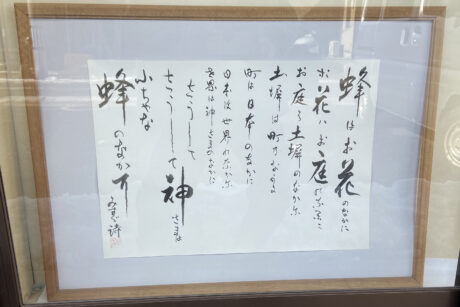 蜂はお花のなかに
お花はお庭のなかに
お庭は土塀のなかに
土塀は町のなかに
町は日本のなかに
日本は世界のなかに
世界は神さまのなかに
さうして
さうして神さまは
小ちゃな
蜂のなかに